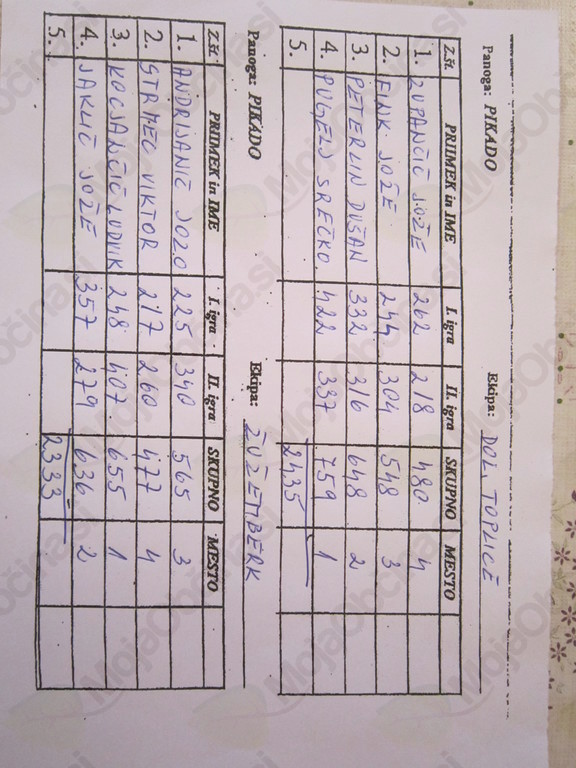 Panoga: PIKADO Ekipa: DOL. TOPLICE
Z.št. PRIIMEK in IME I. igra II. igra SKUPNO MESTO
1. ZUPANČIČ JOŽE 262 218 480 4
2. FINK JOŽE 244 304 548 3
3. PETERLIN DUŠAN 332 316 648 2
4. PUGELJ SREČKO 422 337 759 1
5. 2435
Panoga: PIKADO Ekipa: ŽUŽEMBERK
Z.št. PRIIMEK in IME I. igra II. igra SKUPNO MESTO
1. ANDRIJANIČ JOZO 225 340 565 3
2. STRMEC VIKTOR 217 260 477 4
3. KOCJANČIČ LUDVIK 248 407 655 1
4. JAKLIČ JOŽE 357 279 636 2
5. 2333
MojaObčina.si